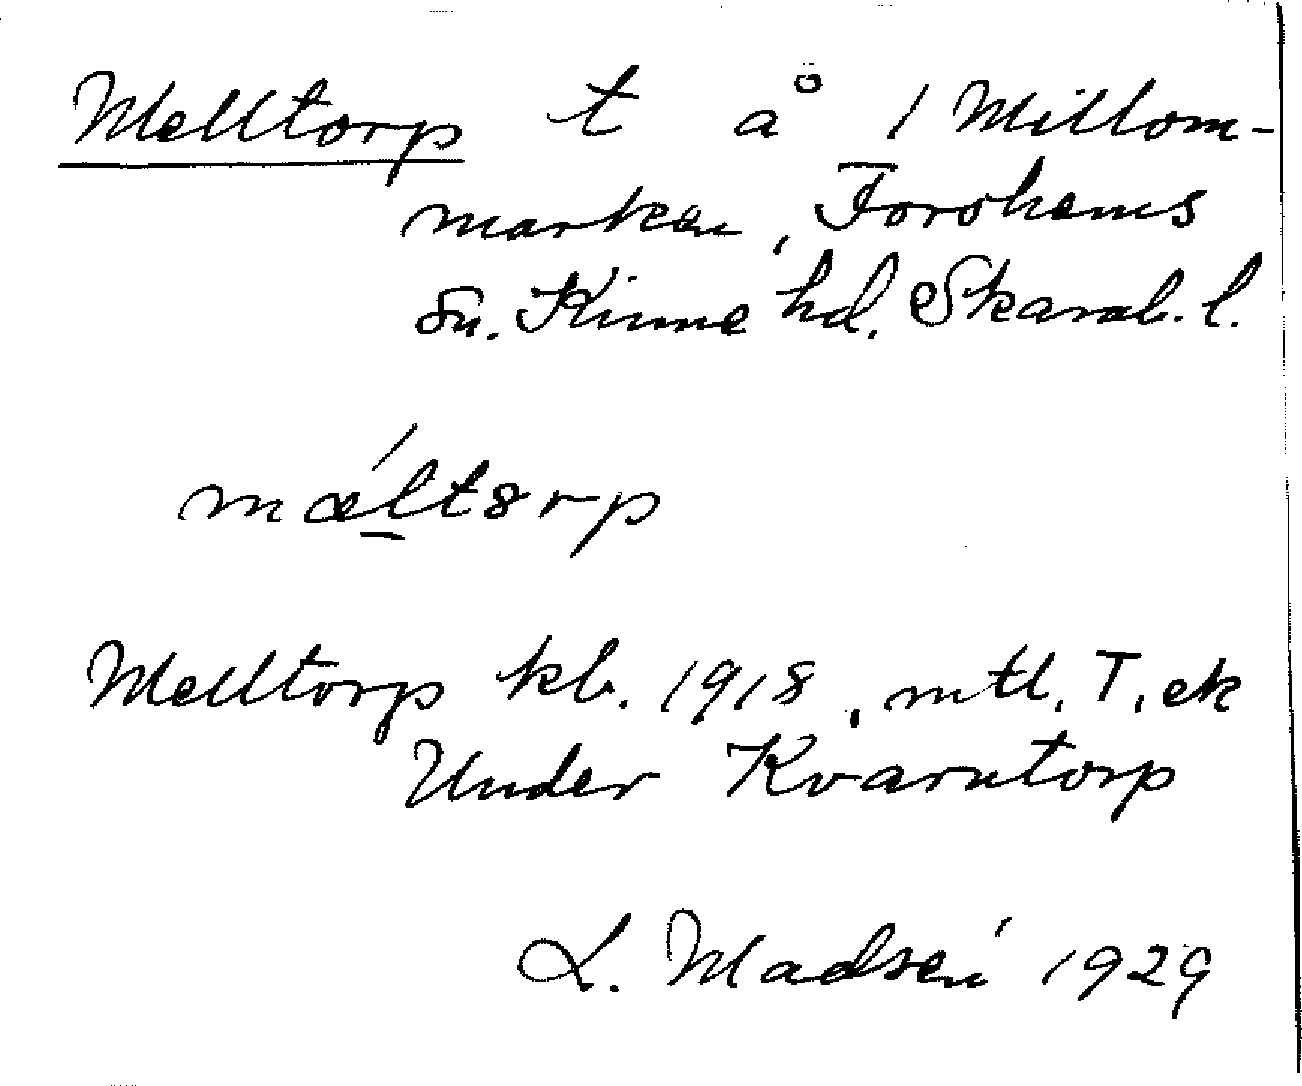 Melltorp t å 1 Millom-
marken, Forshems
sn. Kinne hd. Skarab. l.
mǽltorp
Melltorp kb. 1918, mtl. T, ek
Under Kvarntorp
L. Madsén 1929